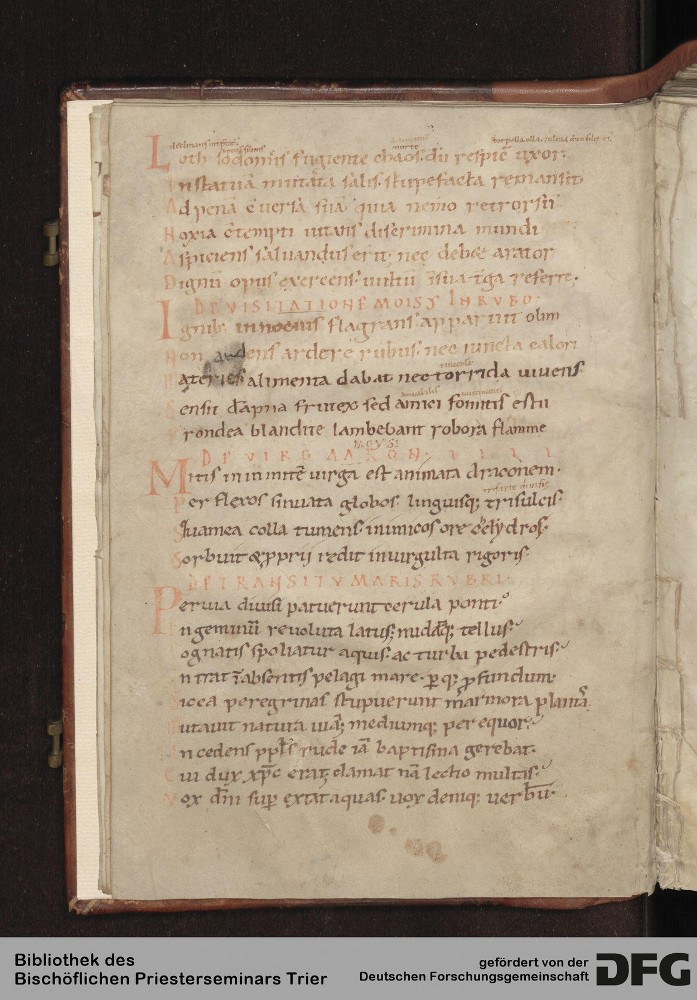 Loth sodomis fugiente chaos. dū respic̄ uxor.
In statuā mutata salis. stupefacta remansit
Ad penā ēuersa suā. quia nemo retrorsū
Noxia c̄tempti uitans discrimina mundi
Aspiciens saluandus erit. nec debet arator
Dignū opus exercens. uultū ī sua t̄ga referre.
DE VISITATIONE MOISY IN RVBO.
Ignib; innocuus flagrans apparuit olim
Non ardens ardere rubus. nec iuncta calori
Materies alimenta dabat nec torrida uiuens
Sensit dāpna frutex sed amici fomitis estu
Frondea blandite lambebant robora flamme
MOYSI
DE VIRGA
Mitis in inmitē uirga est animata draconem.
Per flexos sinuata globos. linguisq; trisulcis.
Squamea colla tumens. inimicos ore chelydros.
Sorbuit & p̄prii redit in uirgulta rigoris.
DE TRANSITV MARIS RVBRI.
Peruia diuisi patuerunt cerula ponti
In geminū reuoluta latus; nudaq; tellus.
Cognatis spoliatur aquis. ac turba pedestris.
Intrat ī absentis pelagi mare. p̄ q; p̄fundum.
Sicca peregrinas stupuerunt marmora plantas
Mutauit natura uiā; mediumq; per equor.
Incedens pp̄ls rude iā baptisma gerebat.
Cui dux xp̄c erat; clamat nā lectio multis.
Vox dn̄i sup̄ extat aquas. uox deniq; uerbū.
Bibliothek des
Bischöflichen Priesterseminars Trier
gefördert von der
Deutschen Forschungsgemeinschaft
DFG